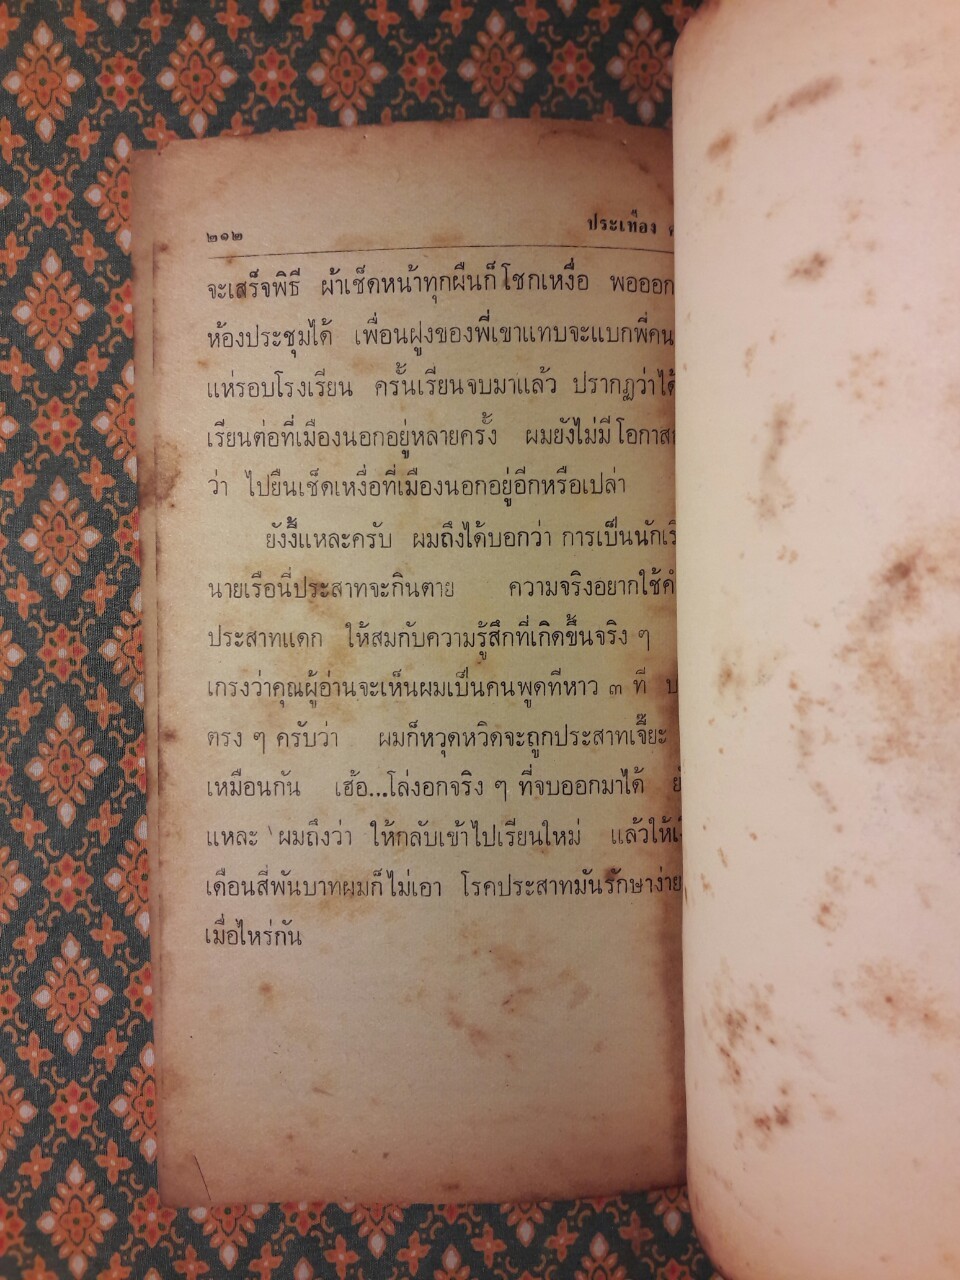 ๒๑๒ ประเทือง
จะเสร็จพิธี ผ้าเช็ดหน้าทุกผืนก็โชกเหงื่อ พอออก
ห้องประชุมได้ เพื่อนฝูงของพี่เขาแทบจะแบกพี่คน
แห่รอบโรงเรียน ครั้นเรียนจบมาแล้ว ปรากฏว่าได้
เรียนต่อที่เมืองนอกอยู่หลายครั้ง ผมยังไม่มีโอกาส
ว่า ไปยืนเช็ดเหงื่อที่เมืองนอกอยู่อีกหรือเปล่า
ยังงี้แหละครับ ผมถึงได้บอกว่า การเป็นนักเรี
นายเรือนี่ประสาทจะกินตาย ความจริงอยากใช้คำ
ประสาทแดก ให้สมกับความรู้สึกที่เกิดขึ้นจริง ๆ
เกรงว่าคุณผู้อ่านจะเห็นผมเป็นคนพูดทีหาว ๓ ที
ตรง ๆ ครับว่า ผมก็หวุดหวิดจะถูกประสาทเจี๊ยะ
เหมือนกัน เฮ้อ...โล่งอกจริง ๆ ที่จบออกมาได้
แหละ ผมถึงว่า ให้กลับเข้าไปเรียนใหม่ แล้วให้
เดือนสี่พันบาทผมก็ไม่เอา โรคประสาทมันรักษาง่าย
เมื่อไหร่กัน